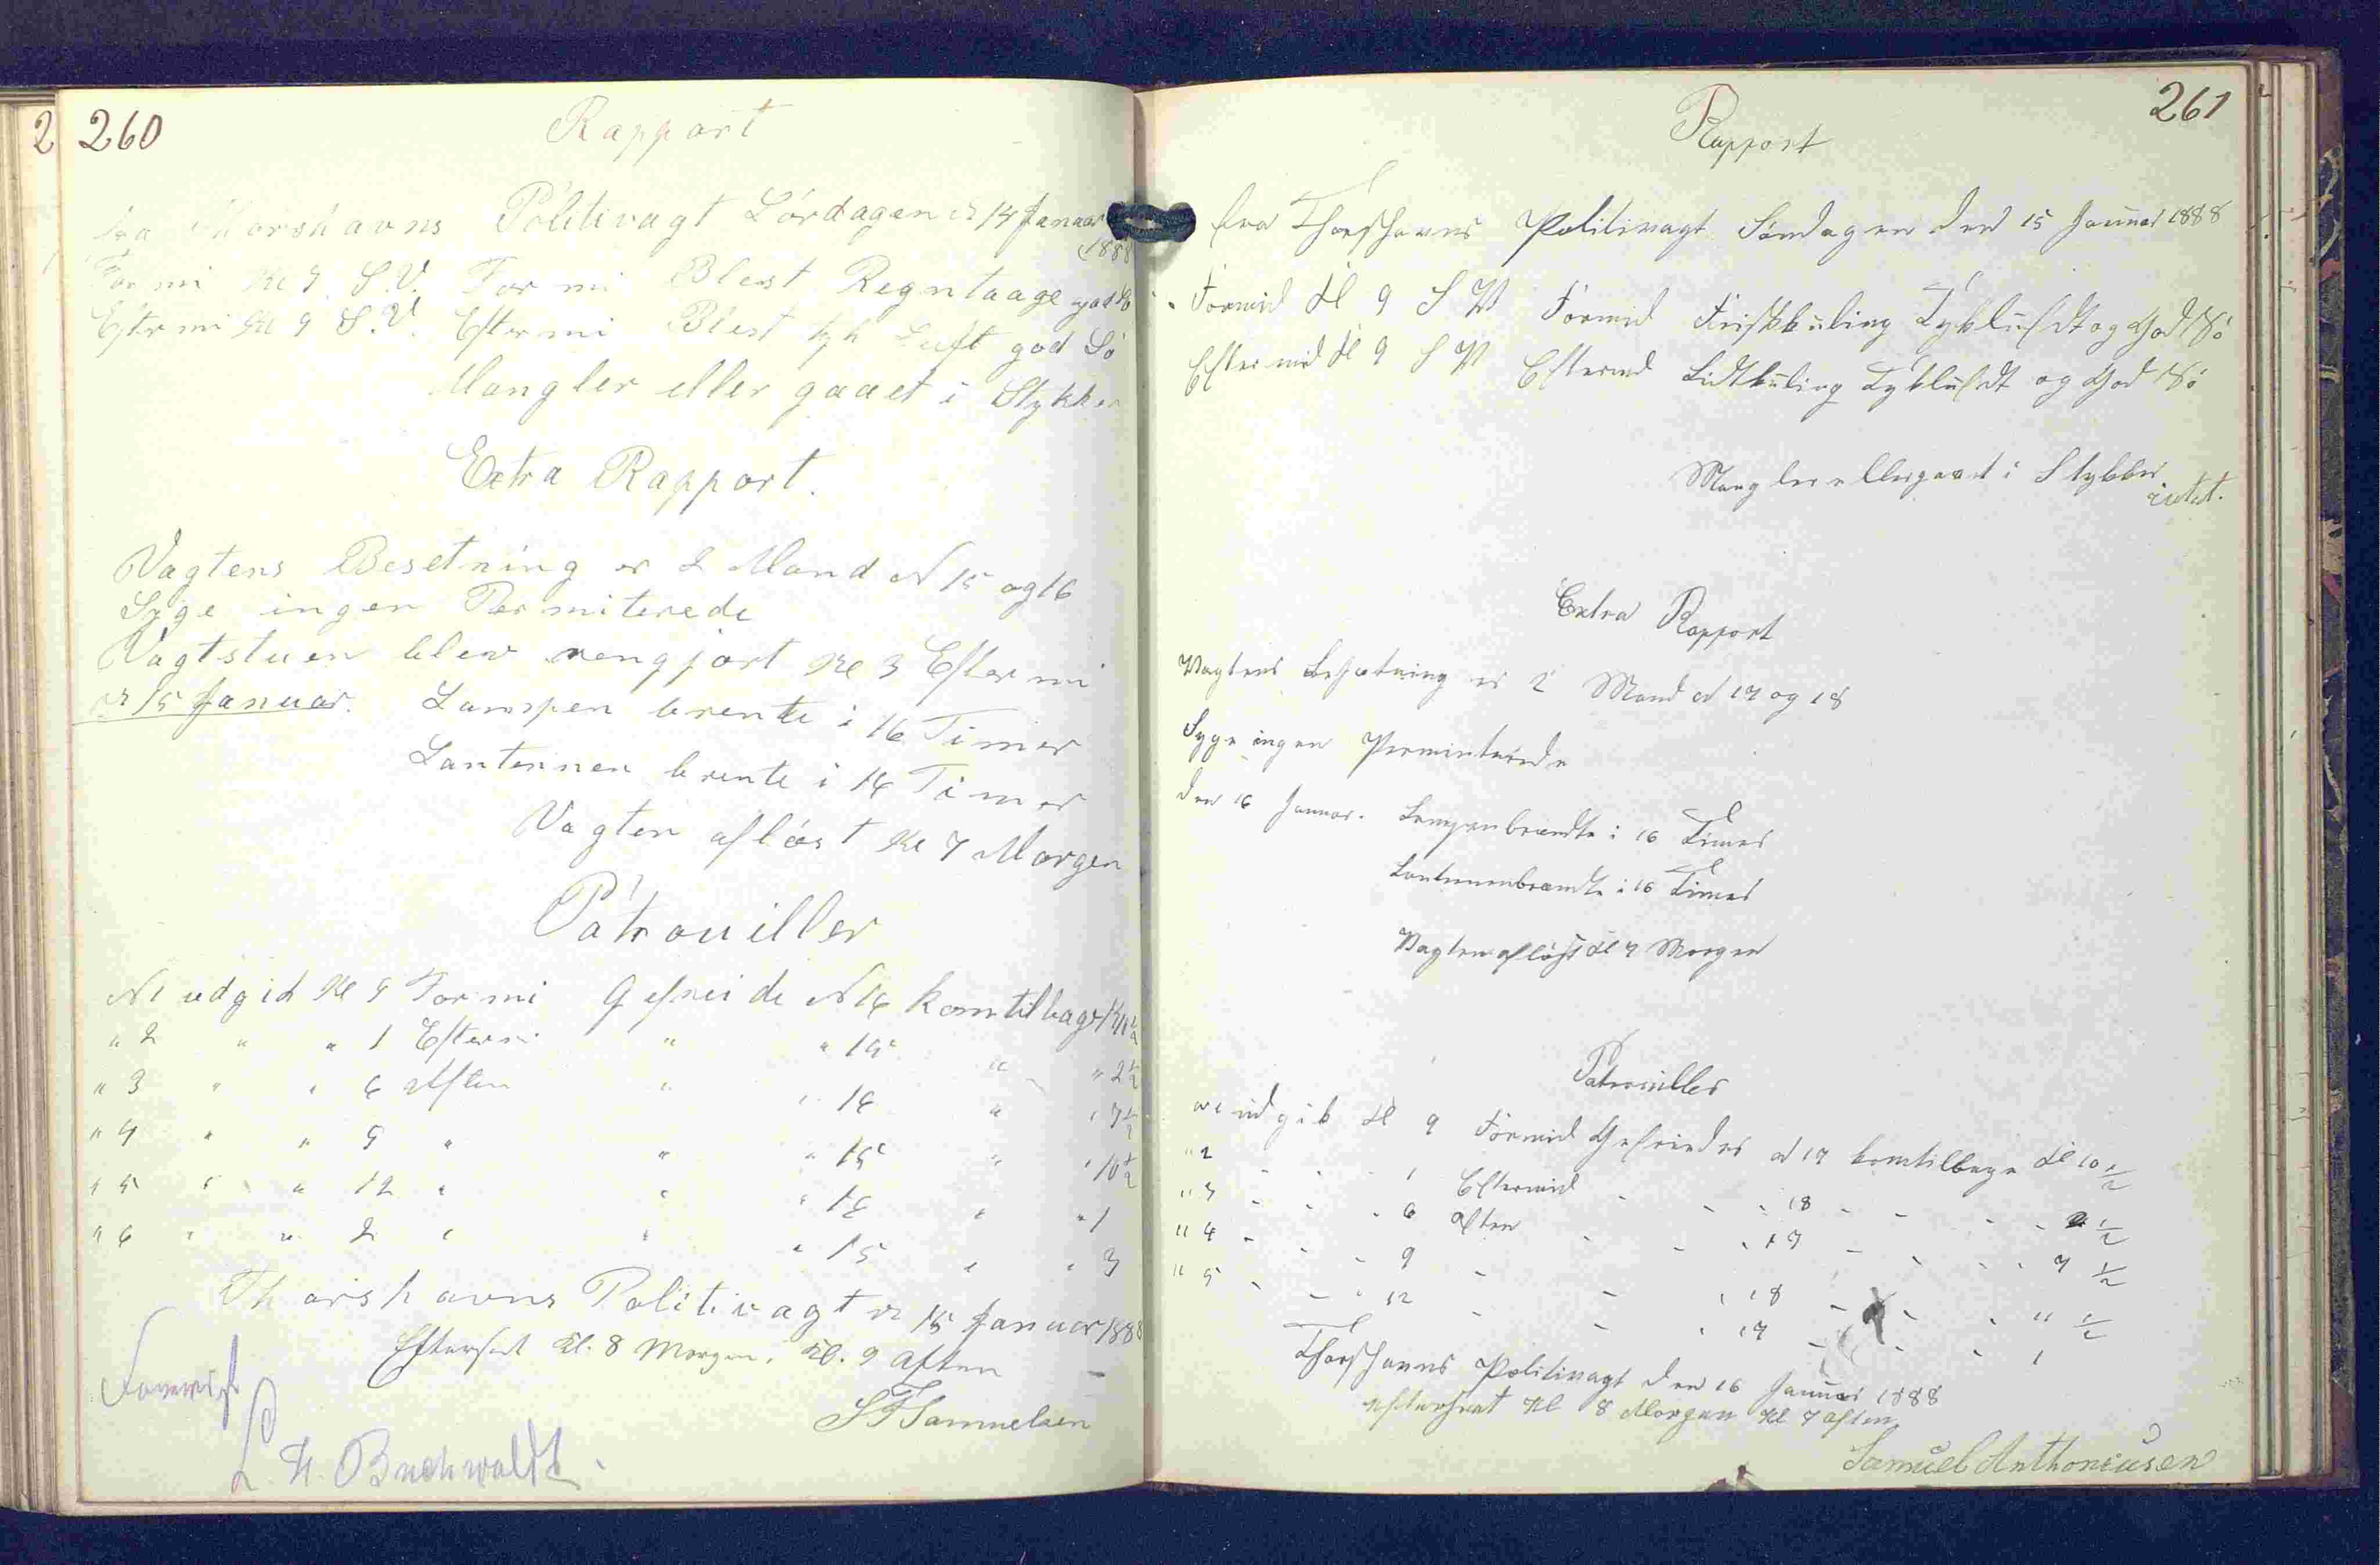 260
Rapport
fra Thorshavns Politivagt Lördagen d 14 Januar
1888
For mi Kl 9 S.V. For mi Blest Regntaage god Sö
Efter mi Kl 9 S.V. Efter mi Blest tyk Luft god Sö
Mangler eller gaaet i Stykker
Extra Rapport.
Vagtens Besetning er 2 Mand N 15 og 16
Syge ingen Permiterede
Vagtstuen blev rengjort Kl 3 Efter mi
d 15 Januar. Lampen brente i 16 Timer
Lanternen brente i 16 Timer
Vagten aflöst Kl 7 Morgen
Patrouiller
N 1 udgik Kl 9 For mi Gefreide N 16 kom tilbage Kl 10 1/2
" 2 " " 1 Efterm " " 15 " " 2 1/2
" 3 " " 6 Aften " " 16 " " 7 1/2
" 4 " " 9 " " " 15 " " 10 1/2
" 5 " " 12 " " " 16 " " 1
" 6 " " 2 " " " 15 " " 3
Thorshavns Politivagt d 15 Januar 1888
Efterseet Kl. 8 Morgen. Kl. 9 Aften
S F Samuelsen
Forevist
L. H. Buchwaldt.
261
Rapport
fra Thorshavns Politivagt Söndagen den 15 Januar 1888
Formid Kl 9 S W Formid Friskkuling Tykluft og God Sö
Eftermid Kl 9 S W Eftermd Lidtkuling Tykluft og God Sö
Mangler eller gaaet i Stykker
intet.
Extra Rapport
Vagtens Besætning er 2 Mand N 17 og 18
Syge ingen Perminterede
den 16 Januar. Lampen brændte i 16 Timer
Lanternen brændte i 16 Timer
Vagten aflöst Kl 7 Morgen
Patrouiller
N 1 udgik Kl 9 Formid Gefreider N 17 kom tilbage Kl 10 1/2
" 2 - - 1 Eftermid - - 18 - - 2 1/2
" 3 - - 6 Aften - - 17 - - 7 1/2
" 4 - - 9 - - - 18 - - " 1/2
" 5 - - 12 - - - 17 - - 1
Thorshavns Politivagt den 16 Januar 1888
efterseet Kl 8 Morgen Kl 7 Aften
Samuel Anthoniusen